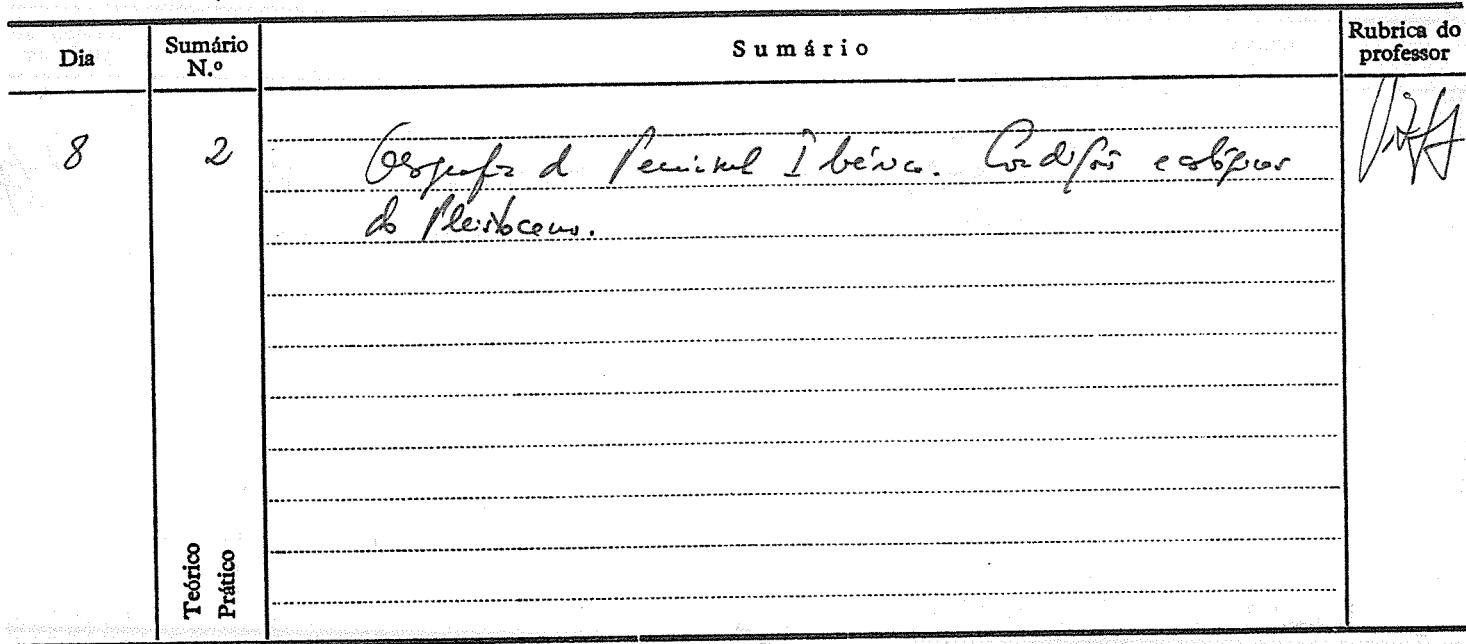 Dia
Sumário N.º
Sumário
Rubrica do professor
8
2
Geografia da Península Ibérica. Condições ecológicas
do Pleistoceno.
Teórico
Prático